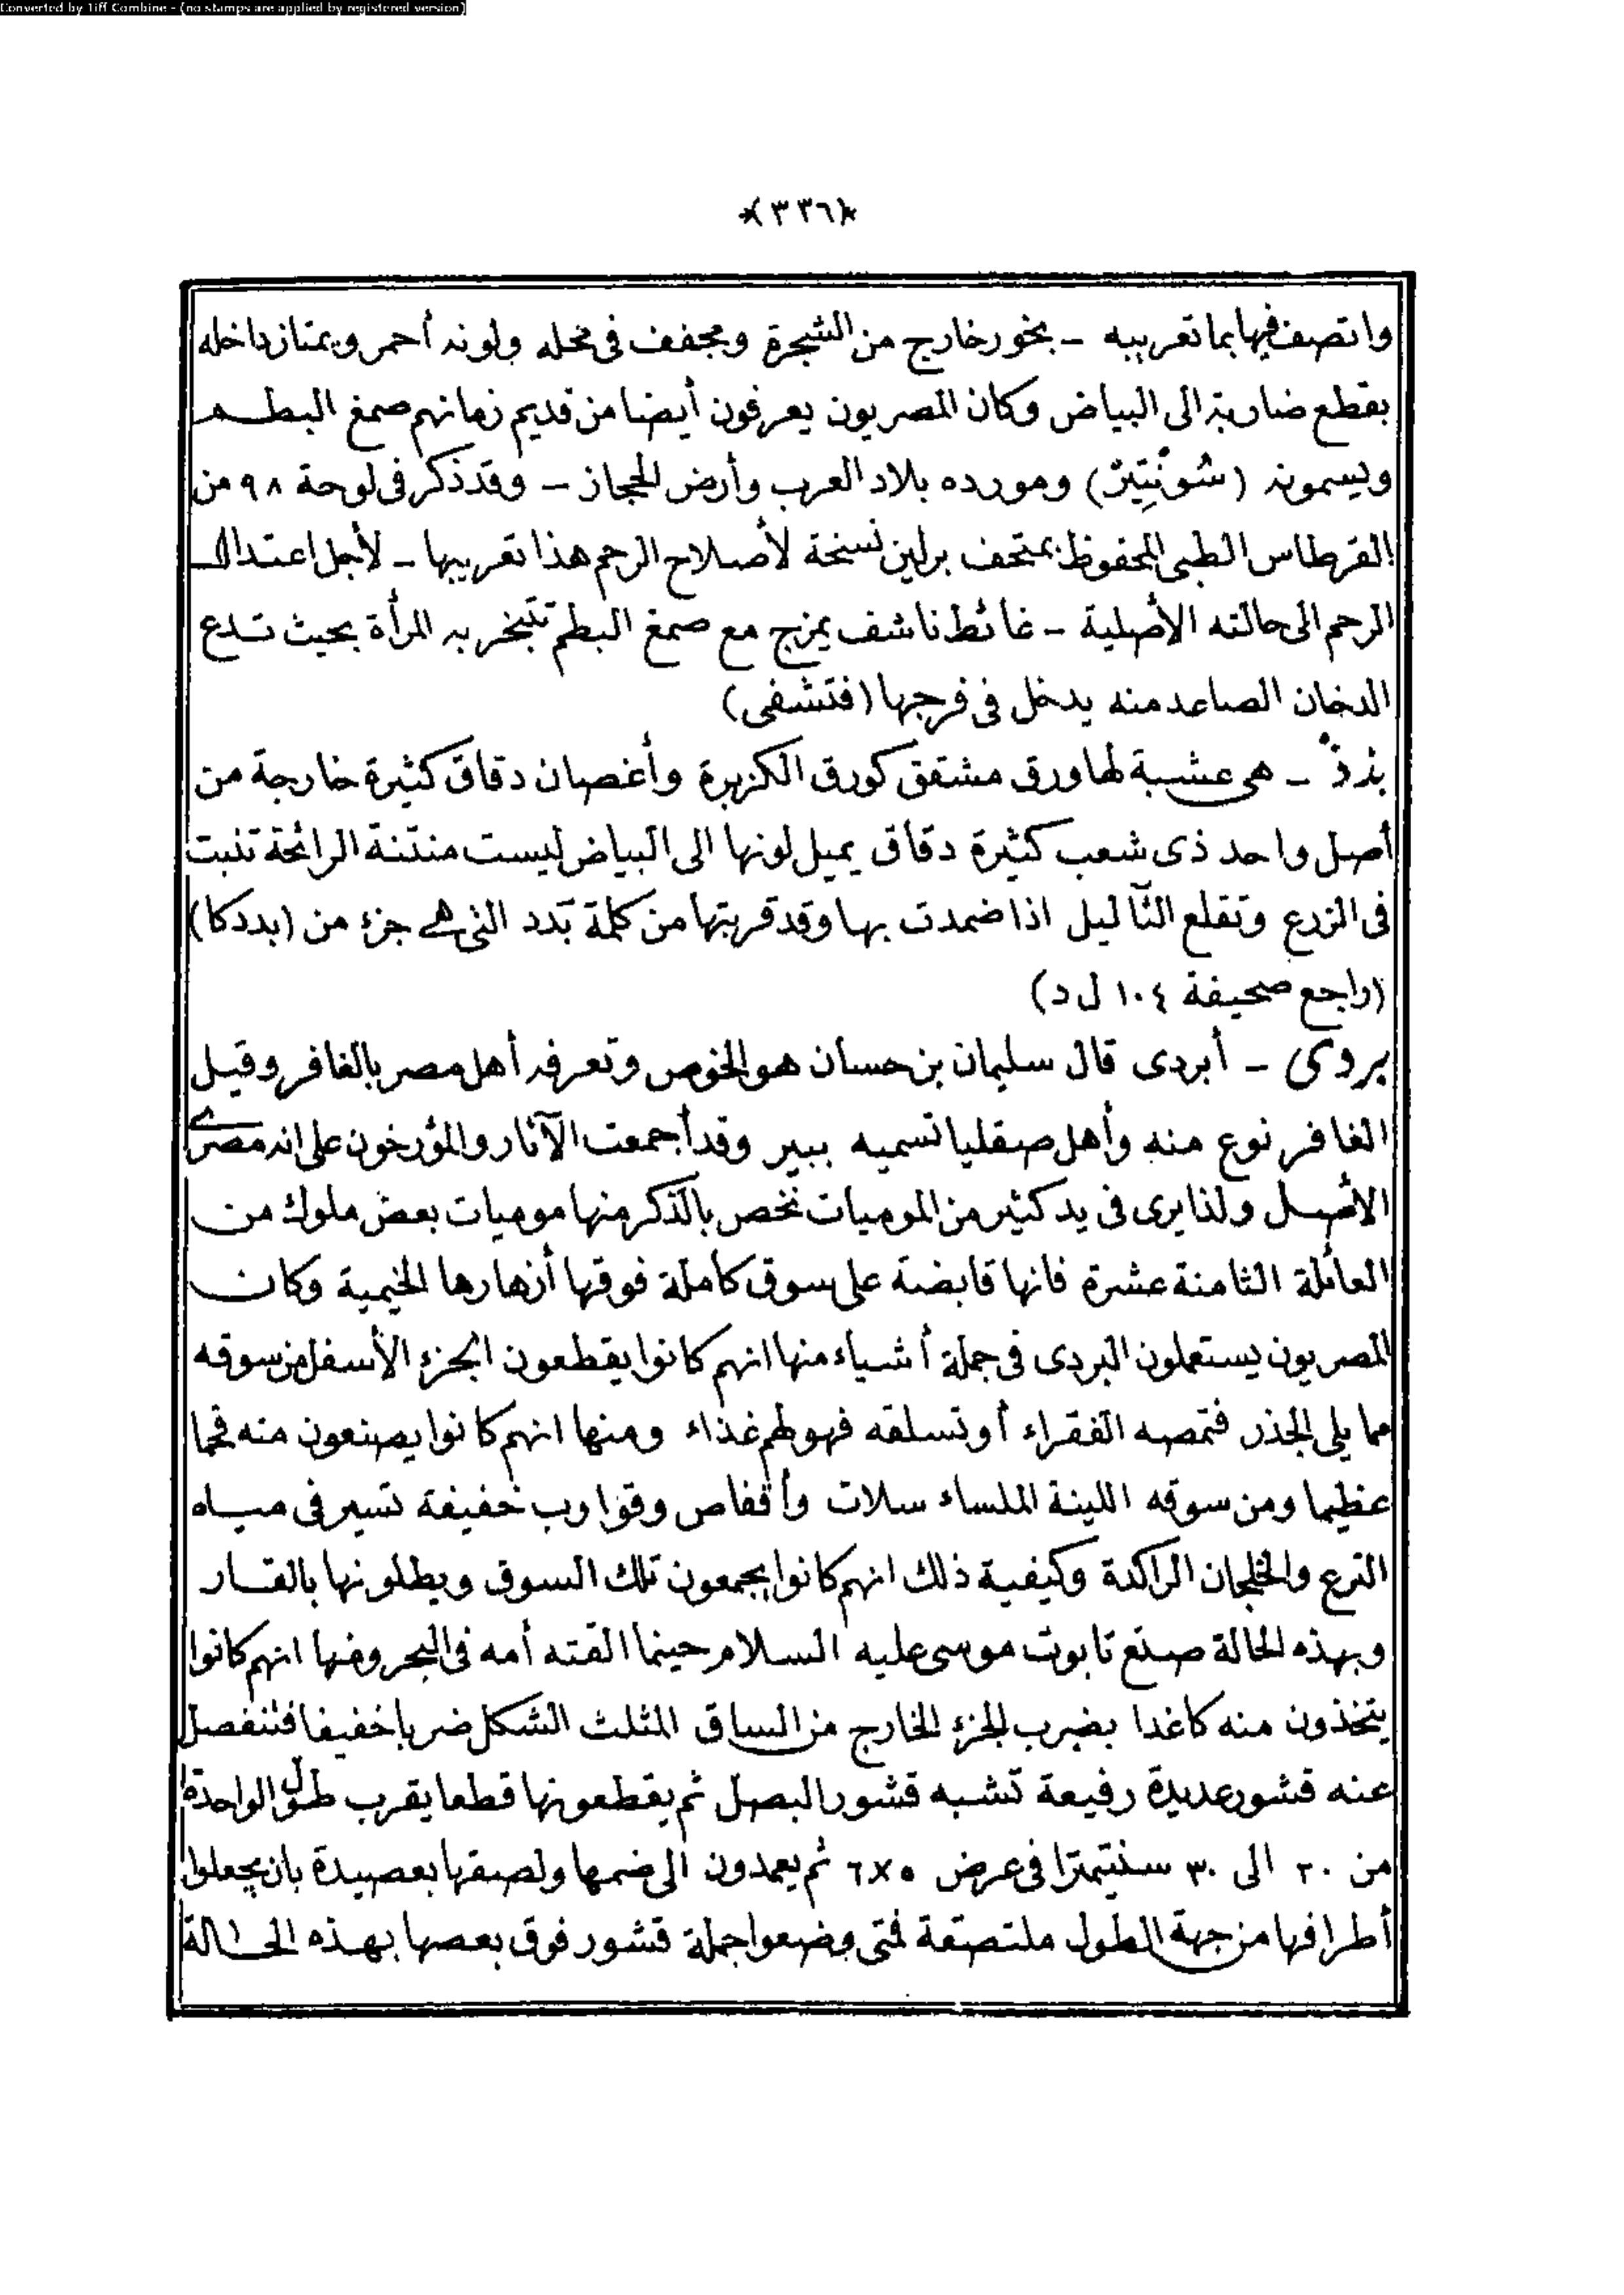 Converted by Tiff Combine - (no stamps are applied by registered version)
*(٣٣٦)*
واتصف فيها بما تعريبه – بخور خارج من الشجرة ومجفف فى محله ولونه أحمر ويمتاز داخله
بقطع ضاربة الى البياض وكان المصريون يعرفون أيضا من قديم زمانهم صمغ البطم
ويسمونه (شونتير) ومورده بلاد العرب وأرض الحجاز – وقد ذكر فى لوحة ٩٨ من
القرطاس الطبى المحفوظ بمتحف برلين نسخة لأصلاح الرحم هذا تعريبها – لأجل اعتدال
الرحم الى حالته الأصلية – غائط ناشف يمزج مع صمغ البطم تتبخر به المرأة بحيث تدع
الدخان الصاعد منه يدخل فى فرجها (فتشفى)
بذذ – هى عشبة لها ورق مشقق كورق الكزبرة وأغصان دقاق كثيرة خارجة من
أصل واحد ذى شعب كثيرة دقاق يميل لونها الى البياض ليست منتنة الرائحة تنبت
فى الزرع وتقلع الثآليل اذا ضمدت بها وقد قربتها من كلمة بَدد التى هى جزء من (بددكا)
(راجع صحيفة ١٠٤ ل د)
بردى – أبردى قال سليمان بن حسان هو الخوص وتعرفه أهل مصر بالغافر وقيل
الغافر نوع منه وأهل صقليا تسميه ببير وقد أجمعت الآثار والمؤرخون على انه مصرى
الأصل ولذا يرى فى يد كثير من الموميات نخص بالذكر منها موميات بعض ملوك من
العائلة الثامنة عشرة فانها قابضة على سوق كاملة فوقها أزهارها الخيمية وكان
المصريون يستعملون البردى فى جملة أشياء منها انهم كانوا يقطعون الجزء الأسفل من سوقه
مما يلى الجذر فتمصه الفقراء أو تسلقه فهو لهم غذاء ومنها انهم كانوا يصنعون منه فحما
عظيما ومن سوقه اللينة الملساء سلات وأقفاص وقوارب خفيفة تسير فى مياه
الترع والخلجان الراكدة وكيفية ذلك انهم كانوا يجمعون تلك السوق ويطلونها بالقار
وبهذه الحالة صنع تابوت موسى عليه السلام حينما القته أمه فى البحر ومنها انهم كانوا
يتخذون منه كاغدا بضرب الجزء الخارج من الساق المثلث الشكل ضربا خفيفا فتنفصل
عنه قشور عديدة رفيعة تشبه قشور البصل ثم يقطعونها قطعا يقرب طول الواحدة
من ٢٠ الى ٣٠ سنتيمترا فى عرض ٥×٦ ثم يعمدون الى ضمها ولصقها بعصيدة بان يجعلوا
أطرافها من جهة الطول ملتصقة فمتى وضعوا جملة قشور فوق بعصها بهذه الحالة